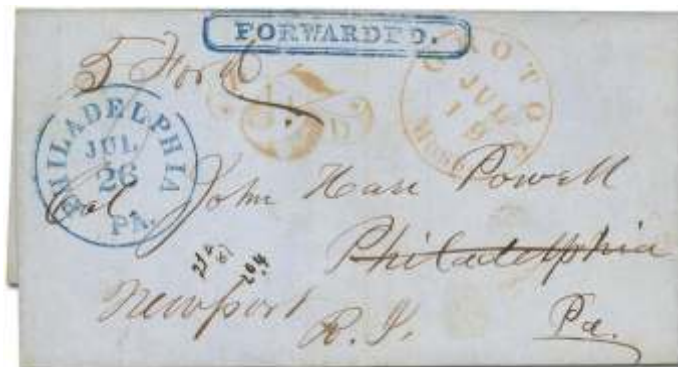 FORWARDED.
5 For
PHILADELPHIA
JUL
26
PA.
JUL
19
Col John Hare Powell
Philadelphia
Pa.
Newport
R. I.